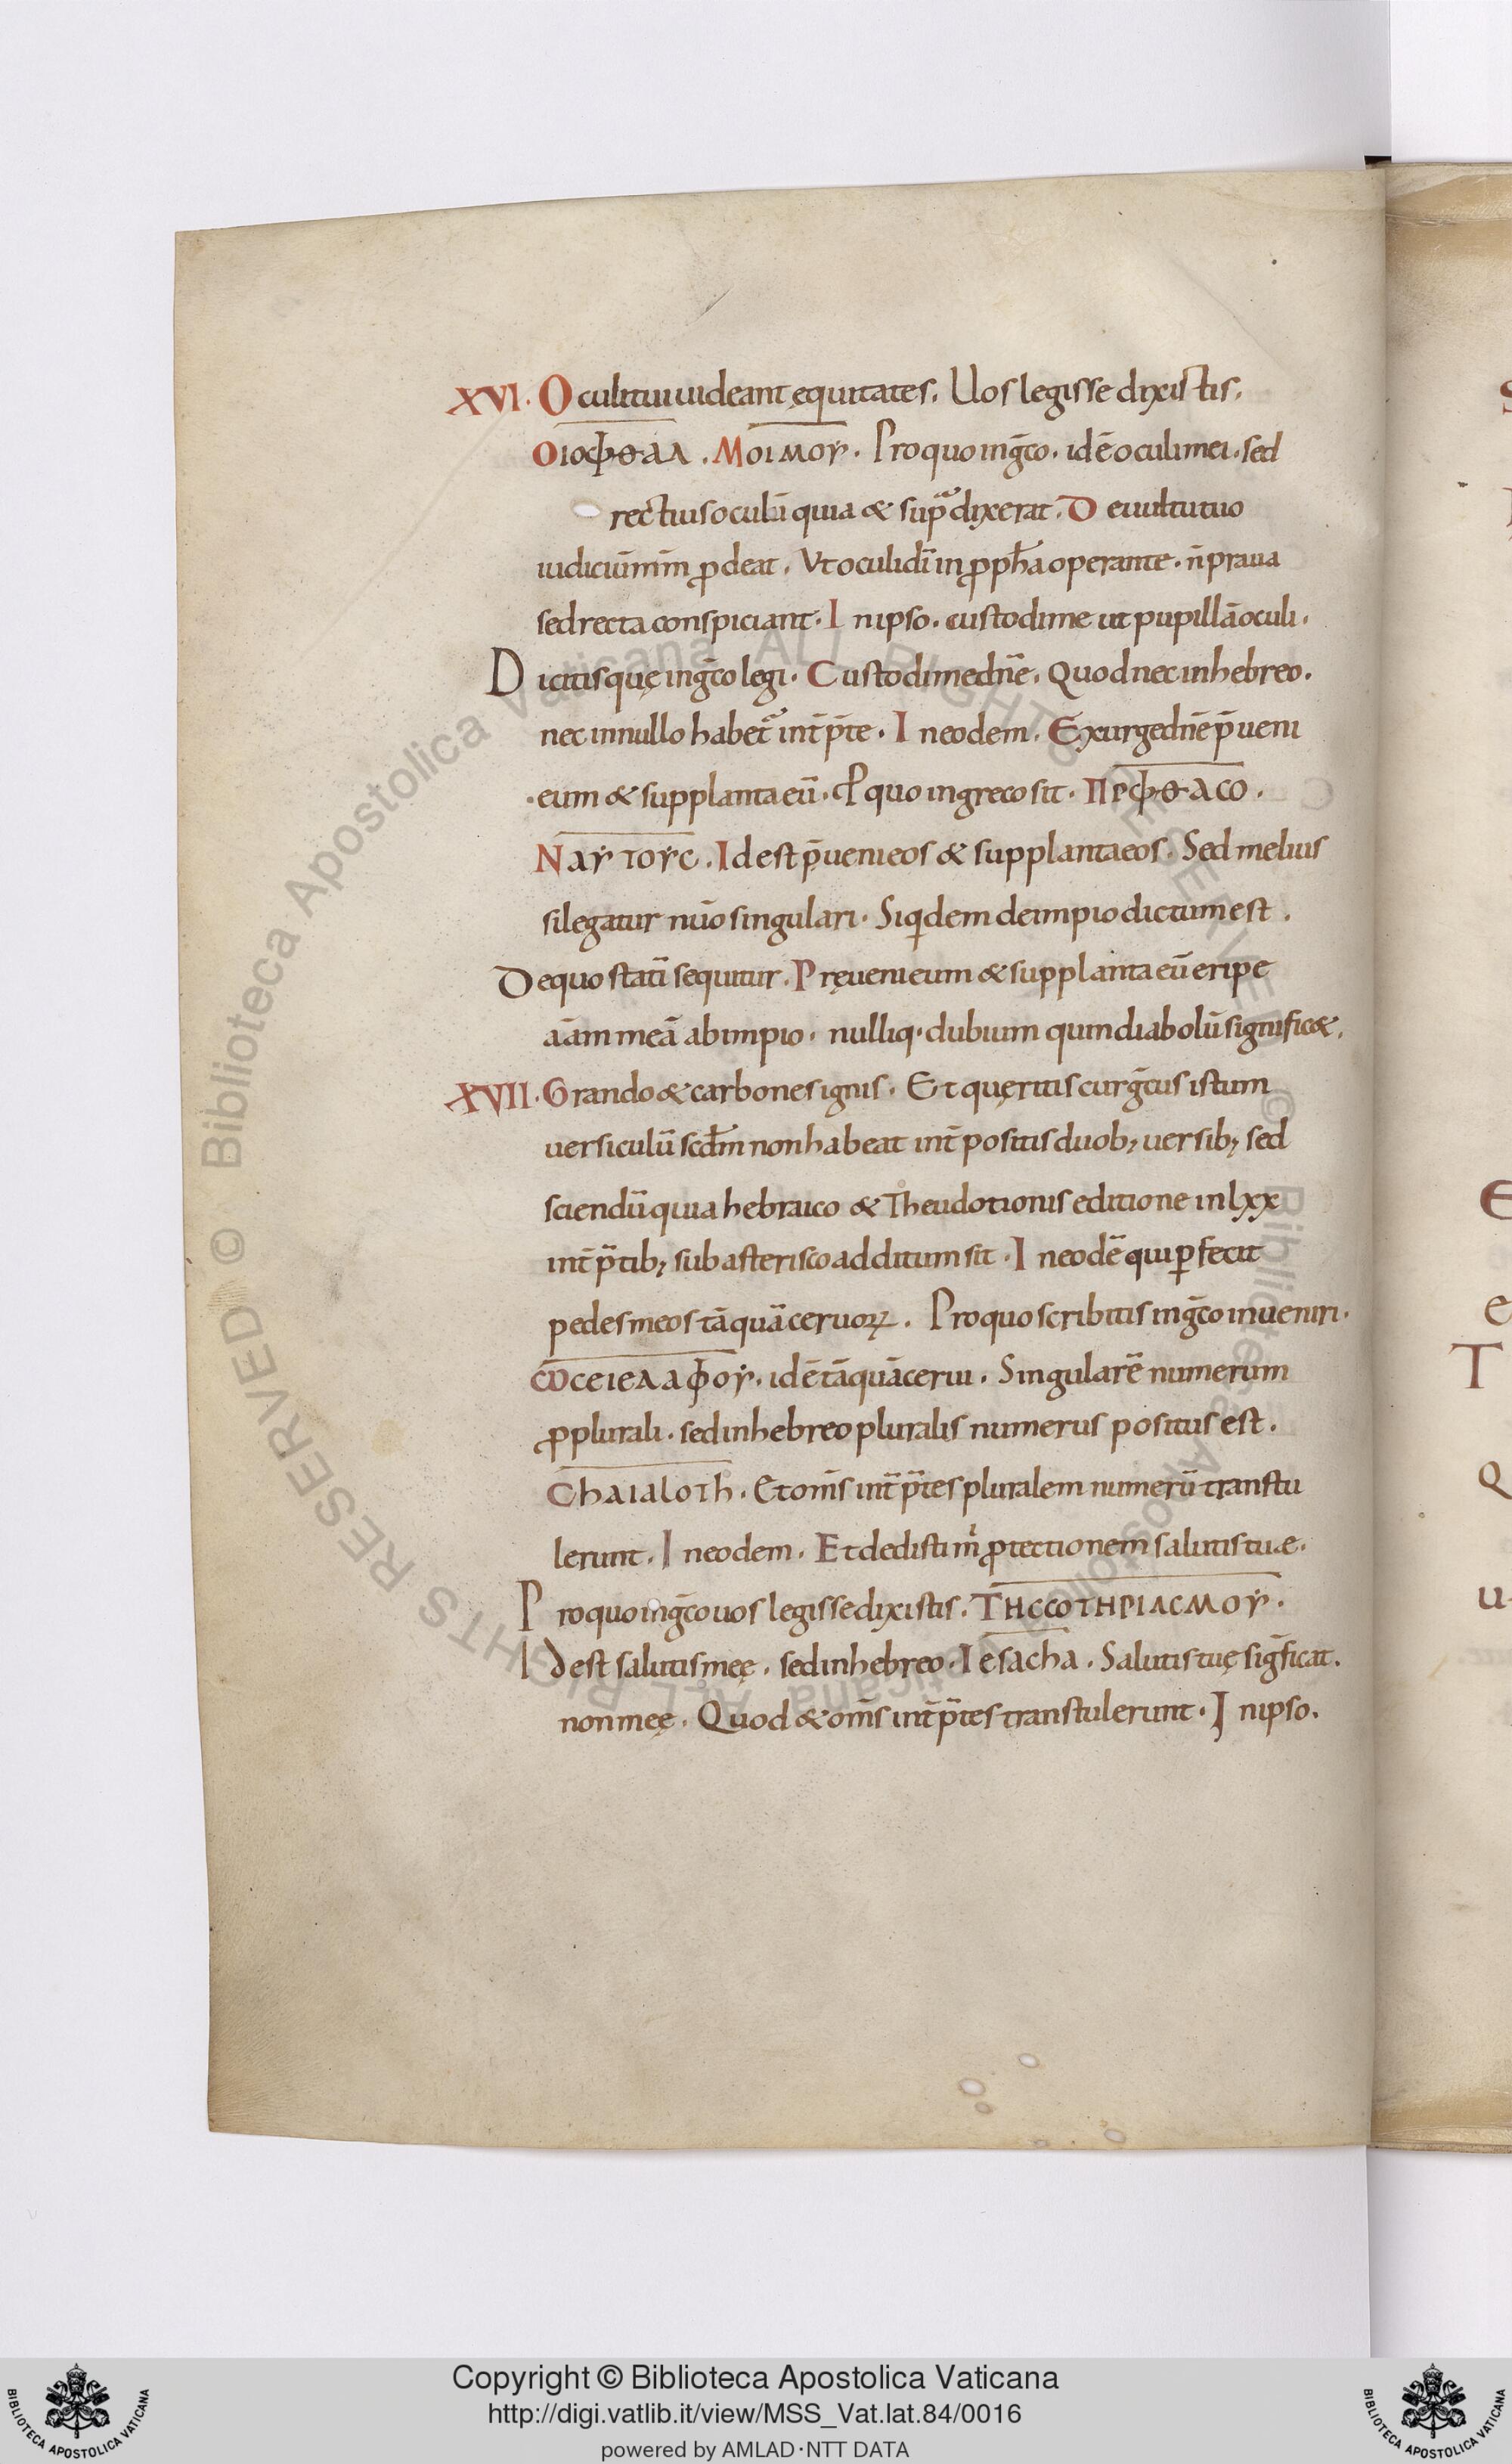 XVI. Oculi tui uideant ęquitates. Uos legisse dixistis.
ΟΙΟΦΘΑΛ. ΜΟΙΜΟΥ. Pro quo in gc̄o. idē oculi mei. sed
rectius oculi tui quia & sup̃ dixerat. De uultu tuo
iudiciū m̄m ꝓdeat. Vt oculi dī in ꝓpħa operante. n̄ praua
sed recta conspiciant. In ipso. custodi me ut pupillā oculi.
Dicitisquę in gc̄o legi. Custodi me dn̄e. Quod nec in hebreo.
nec in nullo habet̃ int̄p̄te. In eodem. Exurge dn̄e p̄ueni
eum & supplanta eū. Pquo in greco sit. ΠΡΦΘΑCΟ.
ΝΑΥΤΟΥC. Id est p̄ueni eos & supplanta eos. Sed melius
si legatur nūo singulari. Siqdem de impio dictum est.
De quo statī sequitur. Pręueni eum & supplanta eū eripe
aām meā ab impio. nulliq. dubium quin diabolū signific&.
XVII. Grando & carbones ignis. Et quęritis cur gc̄us istum
uersiculū scd̄m non habeat int̄positis duob; uersib; sed
sciendū quia hebraico & Theudotionis editione in lxx
int̄p̄tib; sub asterisco additum sit. In eodē qui ꝑfecit
pedes meos tāquā ceruoꝝ. Pro quo scribitis in gc̄o inueniri.
ωCΕΙΕΛΑΦΟΥ. idē tāquā cerui. Singularē numerum
ꝓ plurali. sed in hebreo pluralis numerus positus est.
Chaialoth. Et om̄s int̄p̄tes pluralem numerū transtu
lerunt. In eodem. Et dedisti m̄ ꝓtectionem salutis tuae.
Pro quo in gc̄o uos legisse dixistis. ΤΗCCΟΤΗΡΙΑCΜΟΥ.
Id est salutis meę. sed in hebreo. Iesacha. Salutis tuę siḡficat.
non meę. Quod & om̄s int̄p̄tes transtulerunt. In ipso.
© Biblioteca Apostolica Vaticana ALL RIGHTS RESERVED © Biblioteca Apostolica Vaticana ALL RIGHTS RESERVED
Copyright © Biblioteca Apostolica Vaticana
http://digi.vatlib.it/view/MSS_Vat.lat.84/0016
powered by AMLAD·NTT DATA
BIBLIOTECA APOSTOLICA VATICANA
BIBLIOTECA APOSTOLICA VATICANA